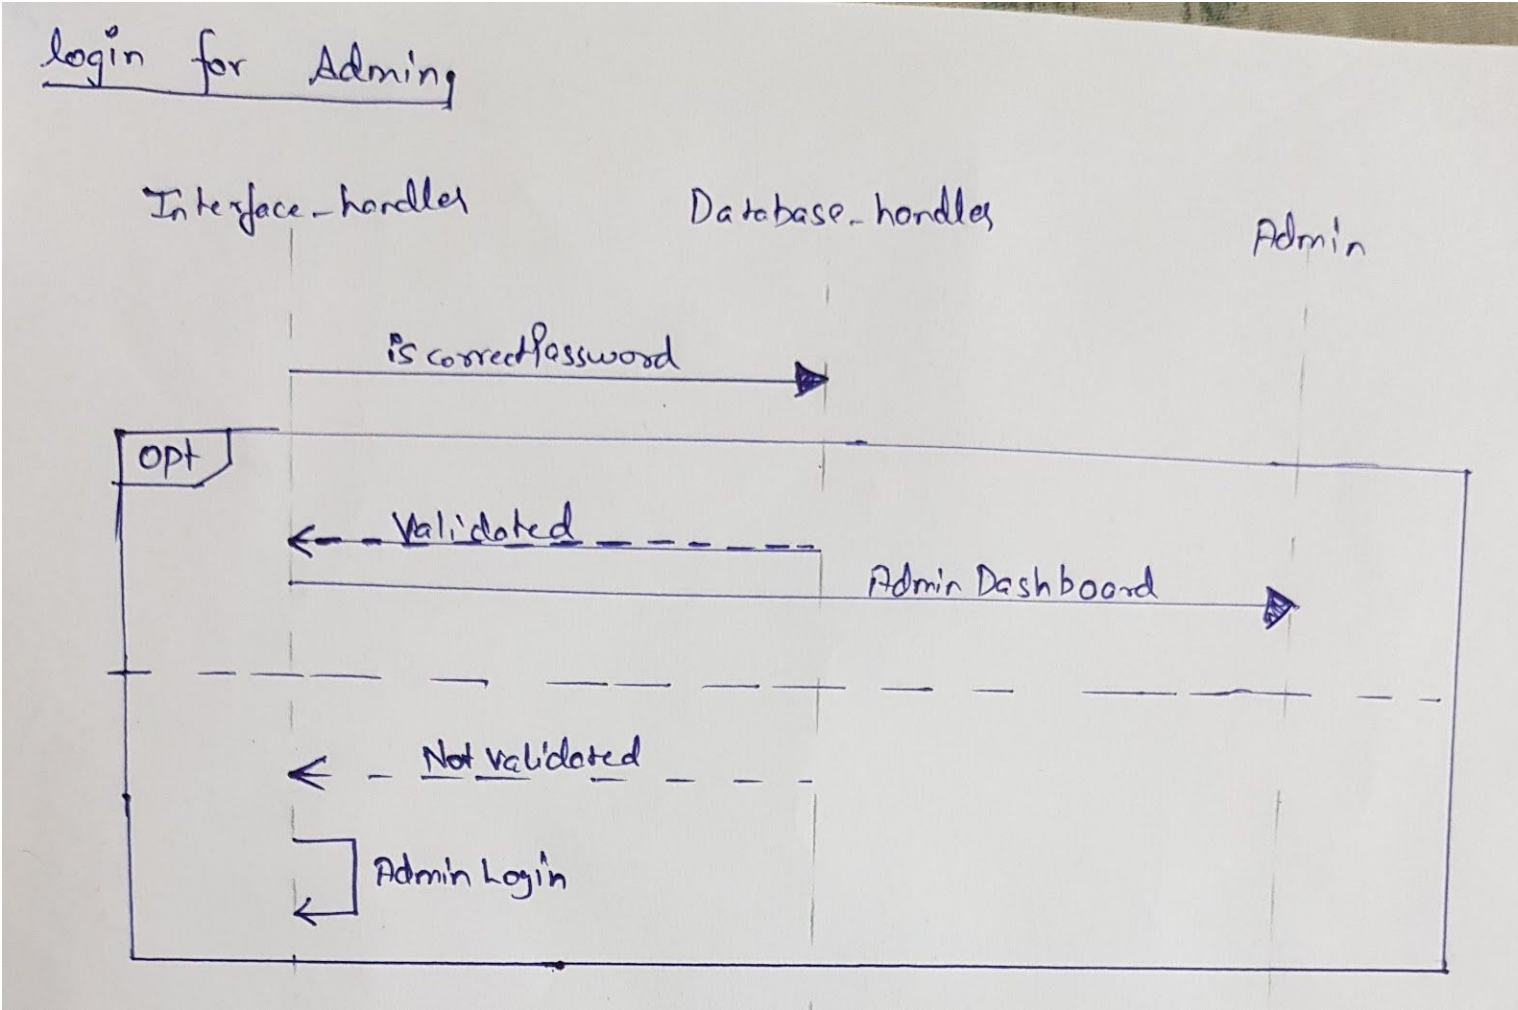 login for Admin,
Interface_handler
Database_handler
Admin
iscorrectPassword
opt
Validated
Admin Dashboard
Not validated
Admin Login